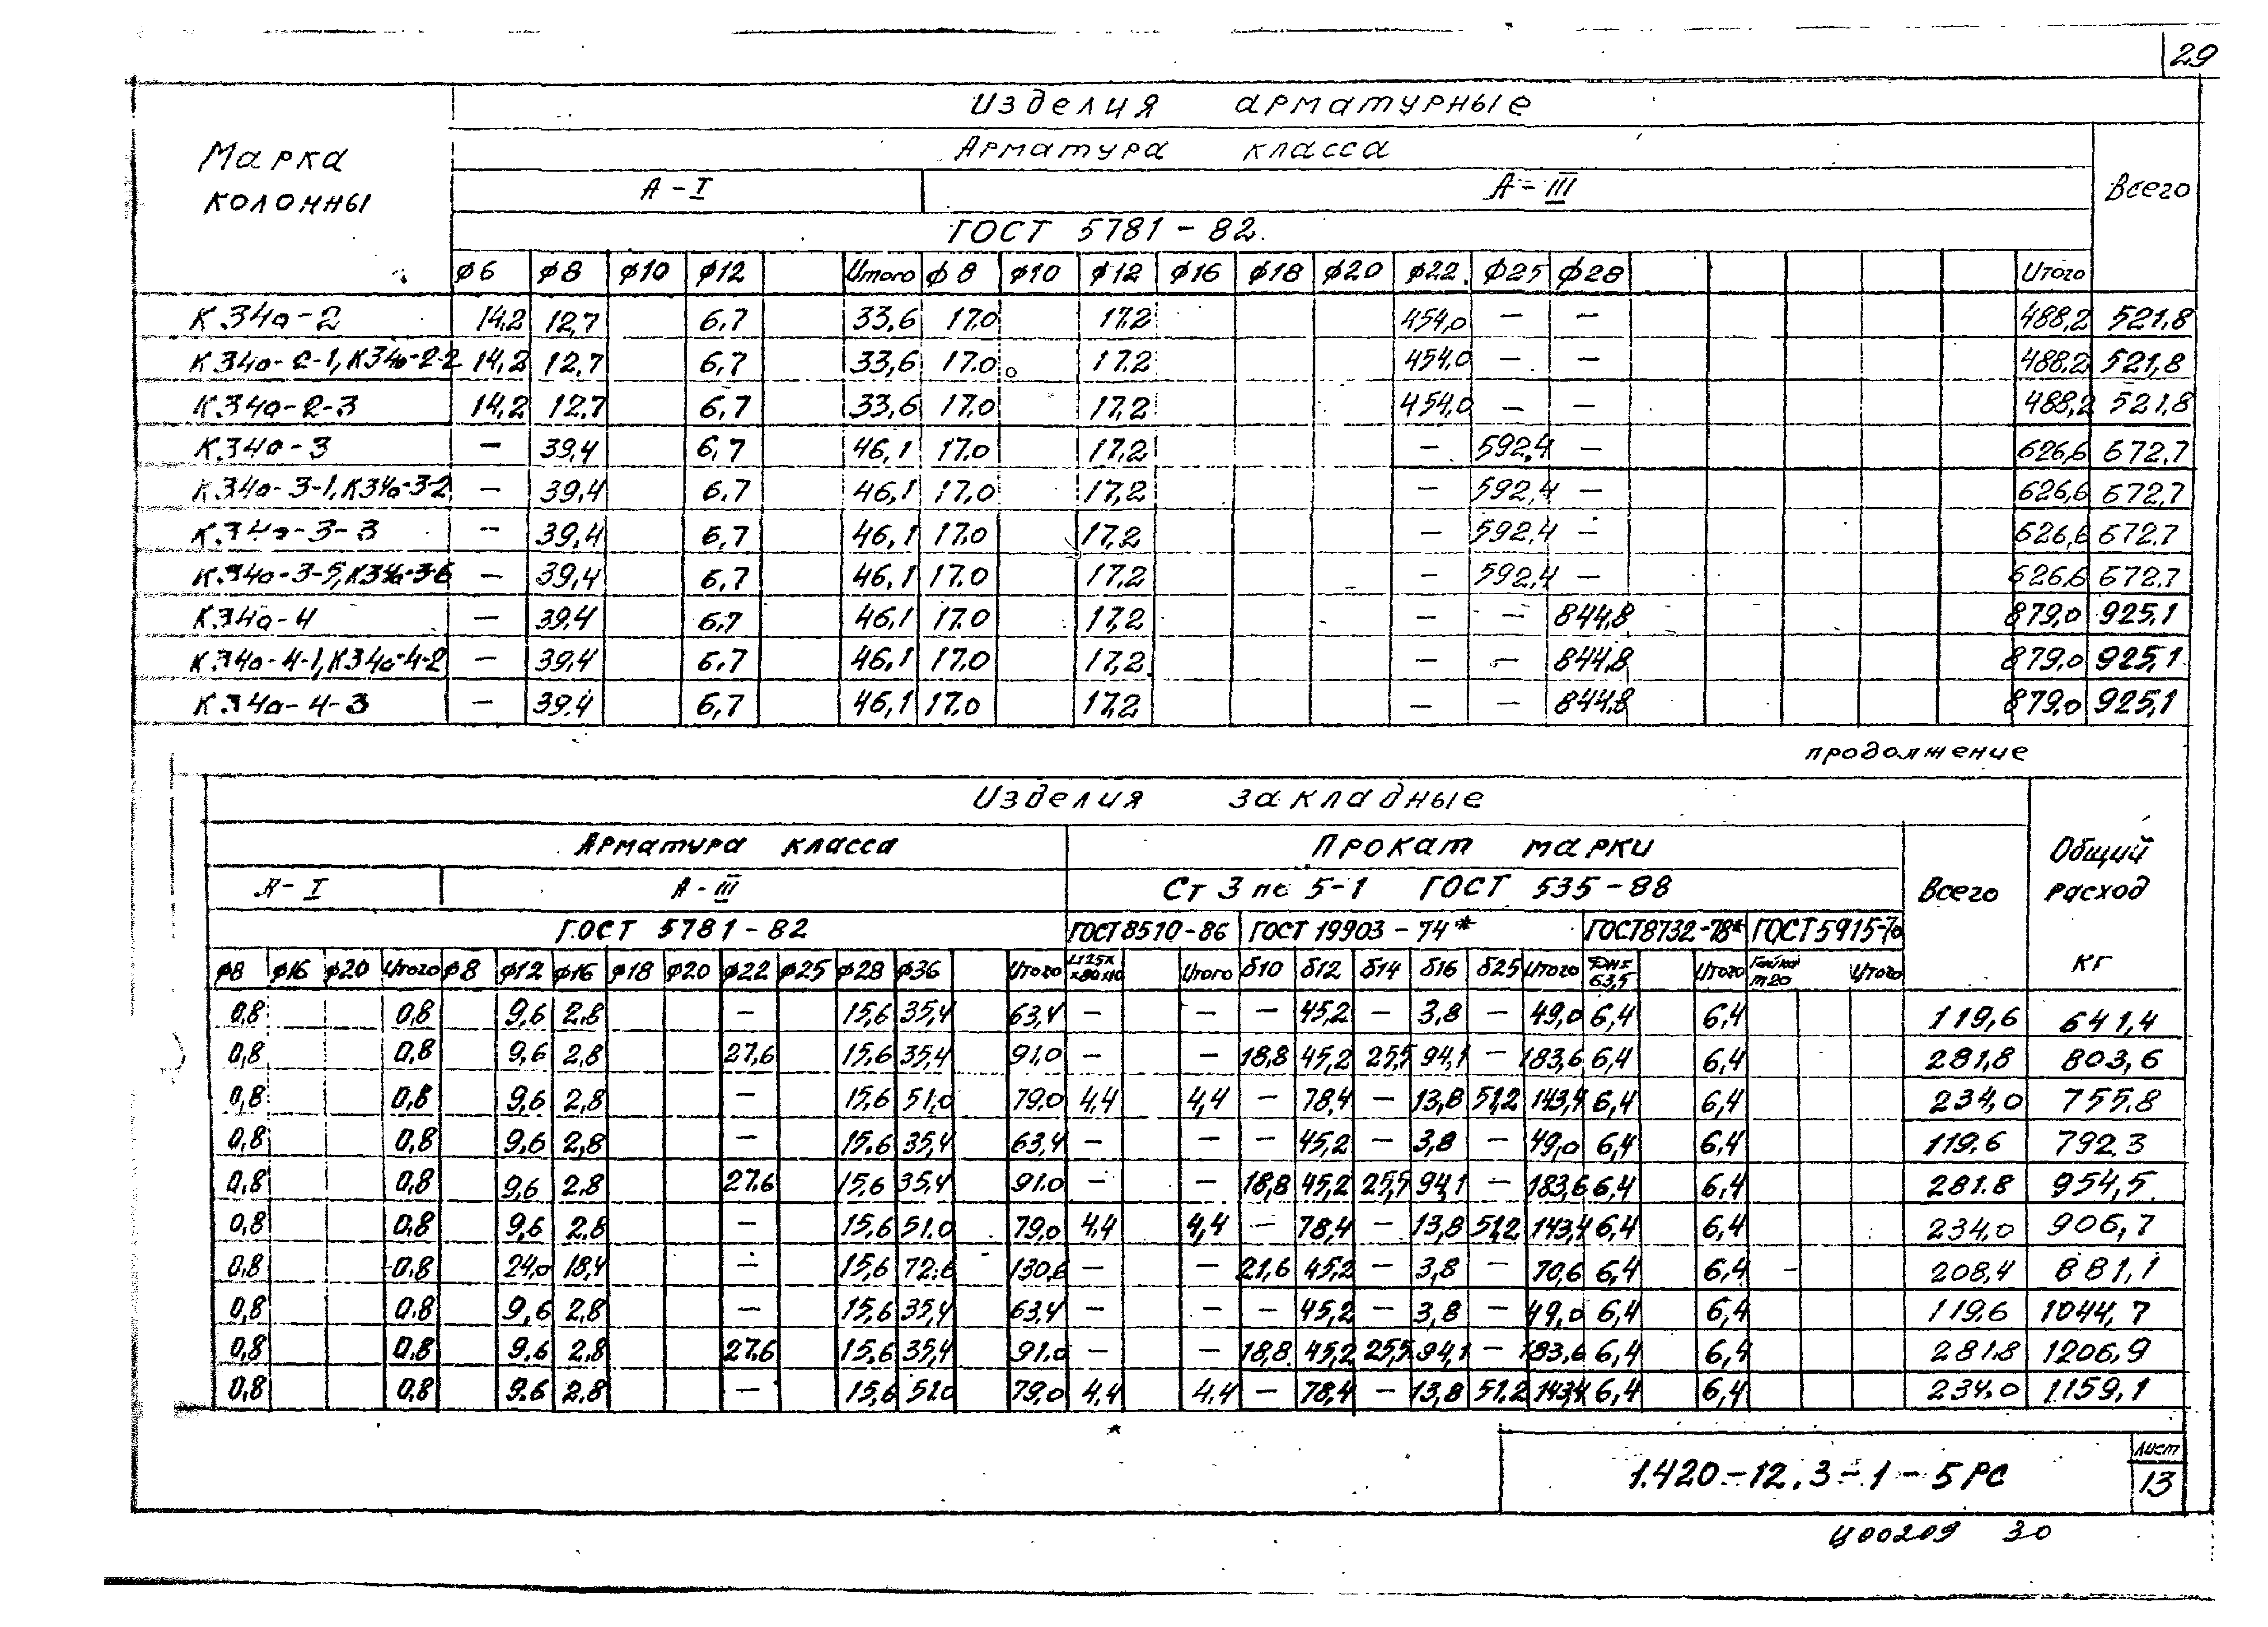 29
Изделия арматурные
Марка колонны
Арматура класса
Всего
А-I А-III
ГОСТ 5781-82
ф6 ф8 ф10 ф12 Итого ф8 ф10 ф12 ф16 ф18 ф20 ф22 ф25 ф28 Итого
К34а-2 14,2 12,7 6,7 33,6 17,0 17,2 454,0 — — 488,2 521,8
К34а-2-1, К34а-2-2 14,2 12,7 6,7 33,6 17,0 17,2 454,0 — — 488,2 521,8
К34а-2-3 14,2 12,7 6,7 33,6 17,0 17,2 454,0 — — 488,2 521,8
К34а-3 — 39,4 6,7 46,1 17,0 17,2 — 592,4 — 626,6 672,7
К34а-3-1, К34а-3-2 — 39,4 6,7 46,1 17,0 17,2 — 592,4 — 626,6 672,7
К34а-3-3 — 39,4 6,7 46,1 17,0 17,2 — 592,4 — 626,6 672,7
К34а-3-5, К34а-3-6 — 39,4 6,7 46,1 17,0 17,2 — 592,4 — 626,6 672,7
К34а-4 — 39,4 6,7 46,1 17,0 17,2 — — 844,8 879,0 925,1
К34а-4-1, К34а-4-2 — 39,4 6,7 46,1 17,0 17,2 — — 844,8 879,0 925,1
К34а-4-3 — 39,4 6,7 46,1 17,0 17,2 — — 844,8 879,0 925,1
продолжение
Изделия закладные
Арматура класса Прокат марки Всего Общий расход кг
А-I А-III Ст 3 пс 5-1 ГОСТ 535-88
ГОСТ 5781-82 ГОСТ 8510-86 ГОСТ 19903-74* ГОСТ 8732-78* ГОСТ 5915-70
ф8 ф16 ф20 Итого ф8 ф12 ф16 ф18 ф20 ф22 ф25 ф28 ф36 Итого L125х х80х10 Итого δ10 δ12 δ14 δ16 δ25 Итого Фдн= 63,5 Итого Гайка м20 Итого
0,8 0,8 9,6 2,8 — 15,6 35,4 63,4 — — — 45,2 — 3,8 — 49,0 6,4 6,4 119,6 641,4
0,8 0,8 9,6 2,8 27,6 15,6 35,4 91,0 — — 18,8 45,2 25,5 94,1 — 183,6 6,4 6,4 281,8 803,6
0,8 0,8 9,6 2,8 — 15,6 51,0 79,0 4,4 4,4 — 78,4 — 13,8 51,2 143,4 6,4 6,4 234,0 755,8
0,8 0,8 9,6 2,8 — 15,6 35,4 63,4 — — — 45,2 — 3,8 — 49,0 6,4 6,4 119,6 792,3
0,8 0,8 9,6 2,8 27,6 15,6 35,4 91,0 — — 18,8 45,2 25,5 94,1 — 183,6 6,4 6,4 281,8 954,5
0,8 0,8 9,6 2,8 — 15,6 51,0 79,0 4,4 4,4 — 78,4 — 13,8 51,2 143,4 6,4 6,4 234,0 906,7
0,8 0,8 24,0 18,4 — 15,6 72,6 130,6 — — 21,6 45,2 — 3,8 — 70,6 6,4 6,4 — 208,4 881,1
0,8 0,8 9,6 2,8 — 15,6 35,4 63,4 — — — 45,2 — 3,8 — 49,0 6,4 6,4 119,6 1044,7
0,8 0,8 9,6 2,8 27,6 15,6 35,4 91,0 — — 18,8 45,2 25,5 94,1 — 183,6 6,4 6,4 281,8 1206,9
0,8 0,8 9,6 2,8 — 15,6 51,0 79,0 4,4 4,4 — 78,4 — 13,8 51,2 143,4 6,4 6,4 234,0 1159,1
1.420-12.3-1-5РС
Лист
13
Ц00209 30